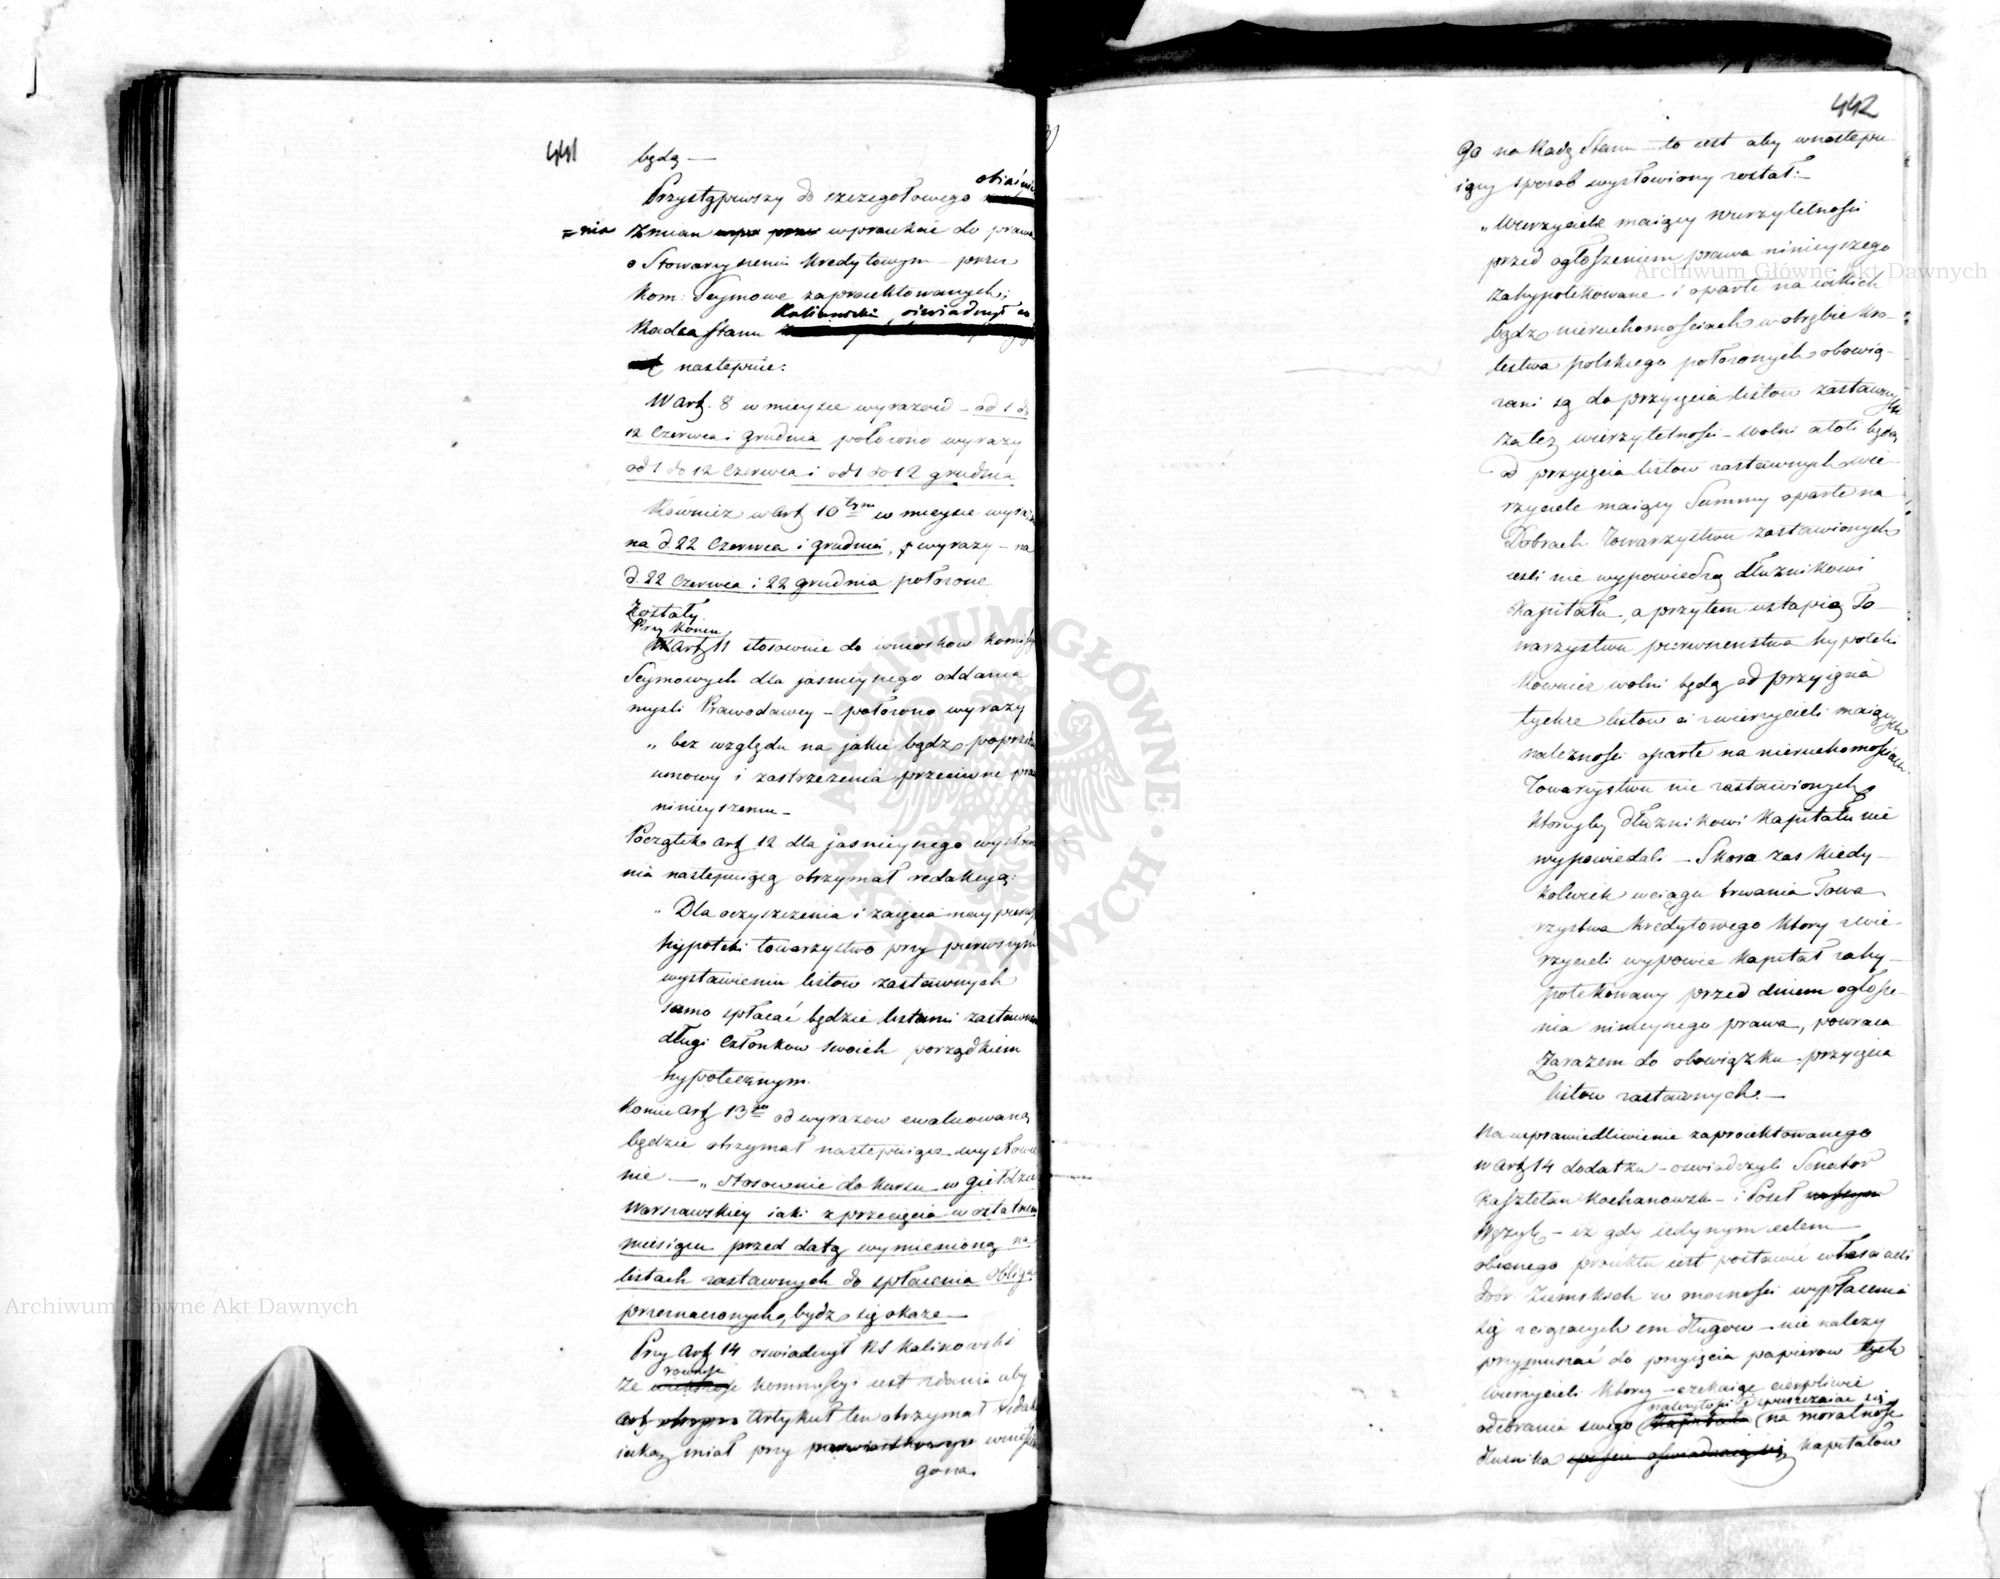 441
będą —
Przystąpiwszy do szczegołowego obiaśnie
=nia zmian w proiekcie do prawa
o Stowarzyszeniu Kredytowym przez
Kom: Seymowe zaproiektowanych;
Radca Stanu Kalinowski, oświadczył co
następuie:
W Art. 8 w mieysce wyrazow — od 1 do
12 Czerwca i grudnia położono wyrazy
od 1 do 12 Czerwca i od 1 do 12 grudnia
Również w Art 10tym w mieysce wyrazow
na d. 22 Czerwca i grudnia, wyrazy — na
d. 22 Czerwca i 22 grudnia położone
zostały
Przy końcu
Art 11 stosownie do wniosków Komissyi
Seymowych dla jaśnieyszego oddania
myśli Prawodawcy — położono wyrazy
„ bez względu na jakie bądz poprzednie
umowy i zastrzeżenia przeciwne prawu
ninieyszemu —
Początek Art 12 dla jaśnieyszego wysłowie
nia następuiącą otrzymał redakcyą:
„ Dla oczyszczenia i zaięcia naypierwszey
hypoteki towarzystwo przy pierwszym
wystawieniu listow zastawnych
samo spłacać będzie listami zastawnemi
długi Członkow swoich porządkiem
hypotecznym.
Koniec Art 13go od wyrazow ewaluowaną
będzie otrzymał następuiące wysłowie
nie — „ stosownie do kursu w giełdzie
Warszawskiey iaki z przecięcia w ostatnim
miesiącu przed datą wymienioną na
listach zastawnych do spłacenia obligu
przeznaczonych, bydź się okaże —
Przy Art 14 oświadczył RS Kalinowski
że Kommissyi iest zdania aby
Artykuł ten otrzymał redak
iaką miał przy wniesie
gona
442
go na Radę Stanu — to iest aby w następu-
iący sposob wysłowiony został: —
„ Wierzyciele maiący wierzytelności
przed ogłoszeniem prawa ninieyszego
zahypotekowane i oparte na iakich
bądz nieruchomościach w obrębie Kró-
lestwa polskiego położonych obowią-
zani są do przyięcia listow zastawnych
za też wierzytelności — Wolni atoli będą
od przyięcia listow zastawnych wie-
rzyciele maiący Summy oparte na
Dobrach Towarzystwu zastawionych
iesli nie wypowiedzą dłużnikowi
Kapitału, a przytem ustąpią To-
warzystwu pierwszeństwa hypoteki
Rownież wolni będą od przyięcia
tychże listow ci z wierzycieli maiących
należności oparte na nieruchomościach
Towarzystwu nie zastawionych,
którzyby dłużnikowi Kapitału nie
wypowiedali — Skoro zaś kiedy-
kolwiek w ciągu trwania Towa
rzystwa Kredytowego który z wie
rzycieli wypowie Kapitał zahy-
potekowany przed dniem ogłosze-
nia ninieyszego prawa, powraca
zarazem do obowiązku przyięcia
listow zastawnych. —
Na usprawiedliwienie zaproiektowanego
w Art 14 dodatku — oswiadczyli Senator
Kasztelan Kochanowski — i Poseł
Wężyk — iż gdy iedynym celem
obecnego proiektu iest postawić właścicieli
dóbr Ziemskich w możności wypłacenia
się z ciążących im długow — nie należy
przymuszać do przyięcia papierow tych
wierzycieli którzy — czekaiąc cierpliwie
należytości i spuszczaiąc się
odebrania swego Kapitału (na moralność
dłużnika Kapitałow